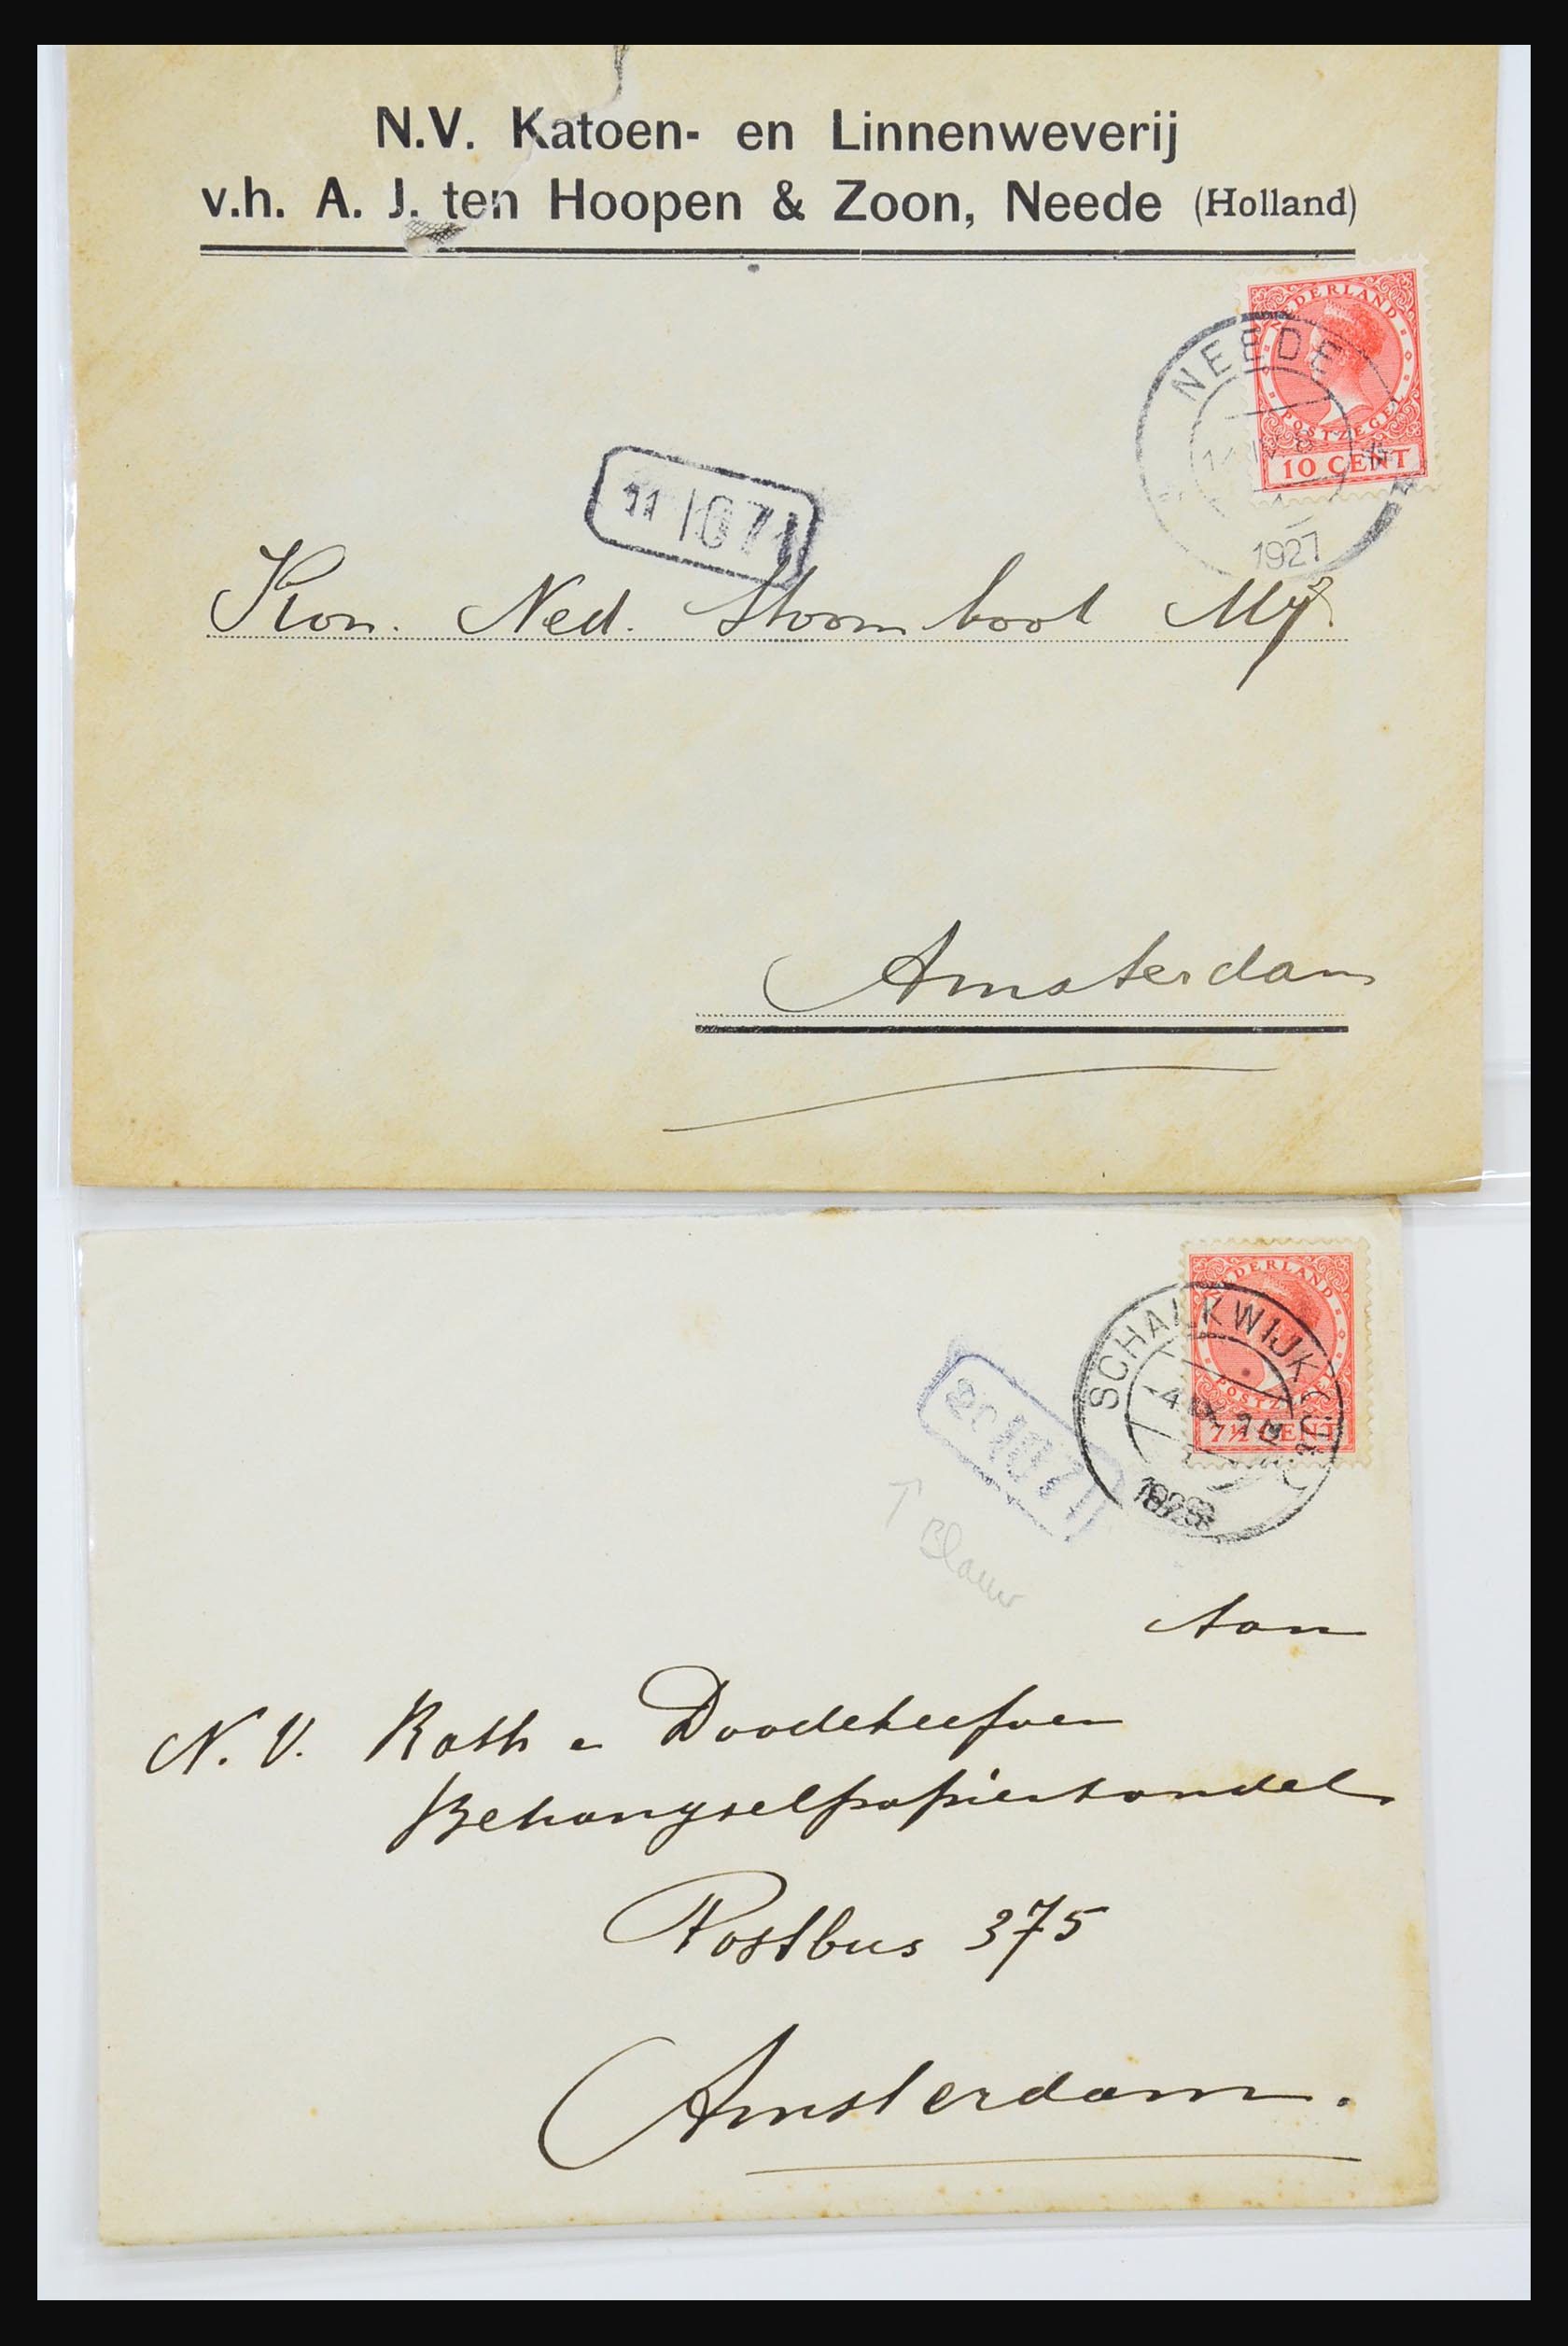 N.V. Katoen- en Linnenweverij
v.h. A. J. ten Hoopen & Zoon, Neede (Holland)
NEDERLAND
POSTZEGEL
10 CENT
NEEDE
1927
11 1071
Kon. Ned. Stoomboot Mij.
Amsterdam
NEDERLAND
POSTZEGEL
7½ CENT
SCHALKWIJK
4
1928
1071
↑ Blauw
Aan
N. V. Rath & Doodeheefver
Behangselpapierhandel
Postbus 375
Amsterdam.